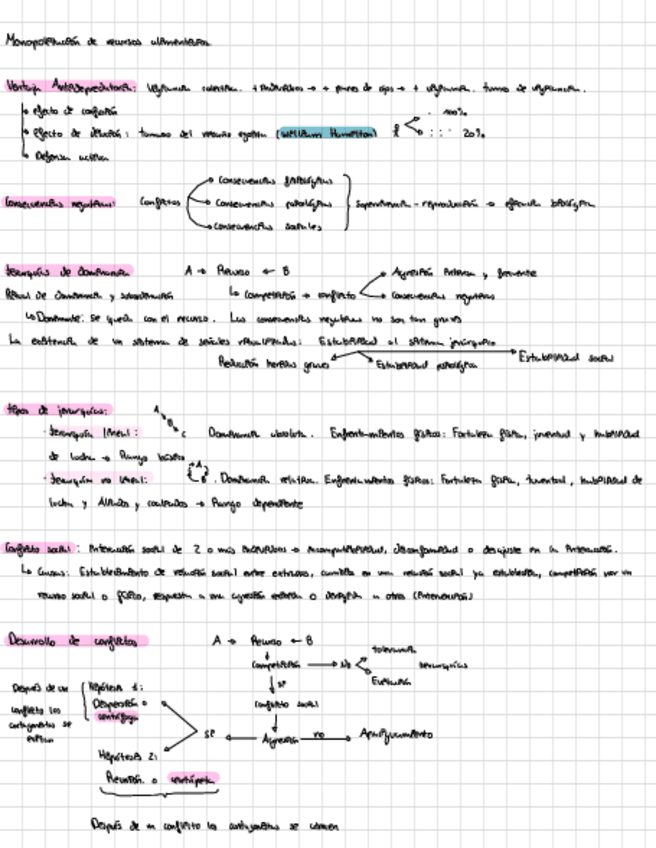 Monopolización de recursos alimenticios
Ventaja Antidepredatoria: Vigilancia colectiva. + individuos → + pares de ojos → + vigilancia. turnos de vigilancia.
→ efecto de confusión
→ efecto de dilución: tamaño del rebaño egoísta (William Hamilton) 100%
20%
→ Defensa activa
Consecuencias fisiológicas
Consecuencias negativas: Conflictos Consecuencias psicológicas supervivencia - reproducción → eficacia biológica
Consecuencias sociales
Jerarquías de dominancia A → Recurso ← B → Agresión intensa y frecuente
Ritual de dominancia y subordinación ↳ Competición → conflicto → Consecuencias negativas
↳ Dominante: se queda con el recurso. Las consecuencias negativas no son tan graves
La existencia de un sistema de señales ritualizadas: Estabilidad al sistema jerárquico
Reducción heridas graves Estabilidad psicológica Estabilidad social
tipos de jerarquías: A B C
· Jerarquía lineal: Dominancia absoluta. Enfrentamientos físicos: Fortaleza física, juventud y habilidad
de lucha → Rango básico
· Jerarquía no lineal: A B C. Dominancia relativa. Enfrentamientos físicos: Fortaleza física, juventud, habilidad de
lucha y Aliados y coaliciones → Rango dependiente
Conflicto social: Interacción social de 2 o más individuos → incompatibilidad, disconformidad o desajuste en la interacción.
↳ Causas: Establecimiento de relación social entre extraños, cambios en una relación social ya establecida, competición por un
recurso social o físico, respuesta a una agresión externa o dirigida a otros (intervención)
Desarrollo de conflictos A → Recurso ← B
tolerancia
Competición → No jerarquías
Evitación
↓ sí
Después de un conflicto los contrincantes se evitan
Hipótesis 1:
Dispersión o
centrífuga
conflicto social
sí ← Agresión no → Apaciguamiento
Hipótesis 2:
Reunión o centrípeta
Después de un conflicto los contrincantes se unen